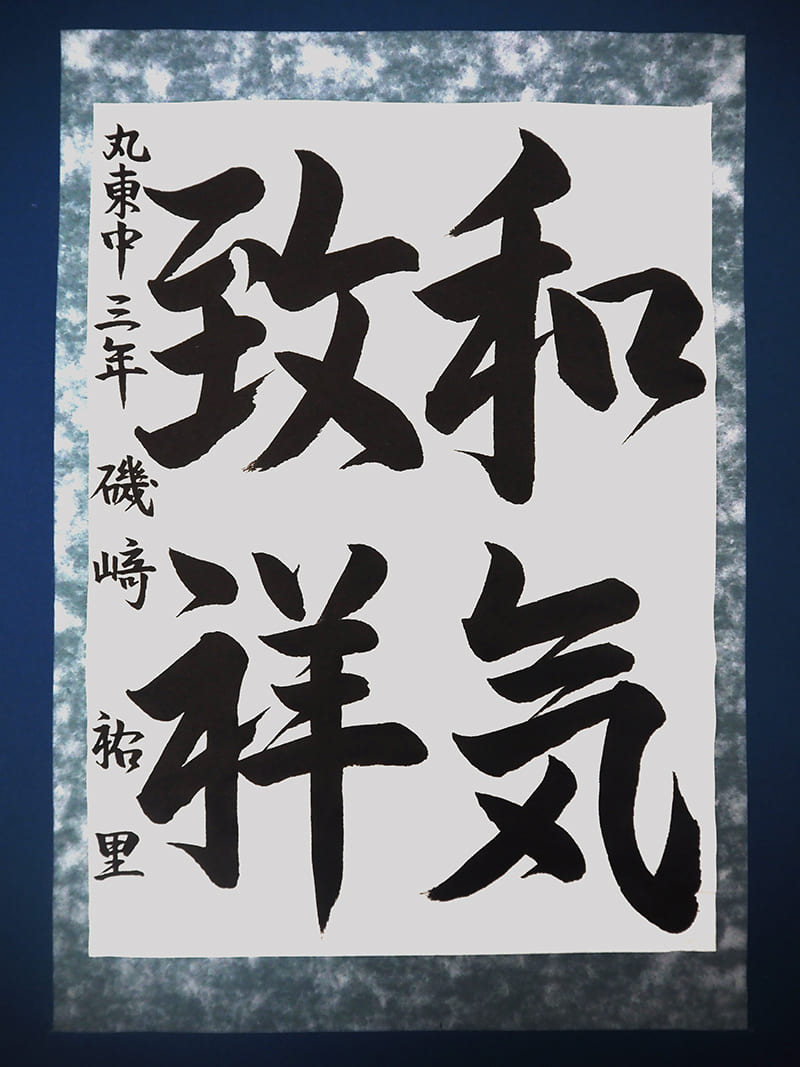 和気
致祥
丸東中 三年 磯﨑 祐里